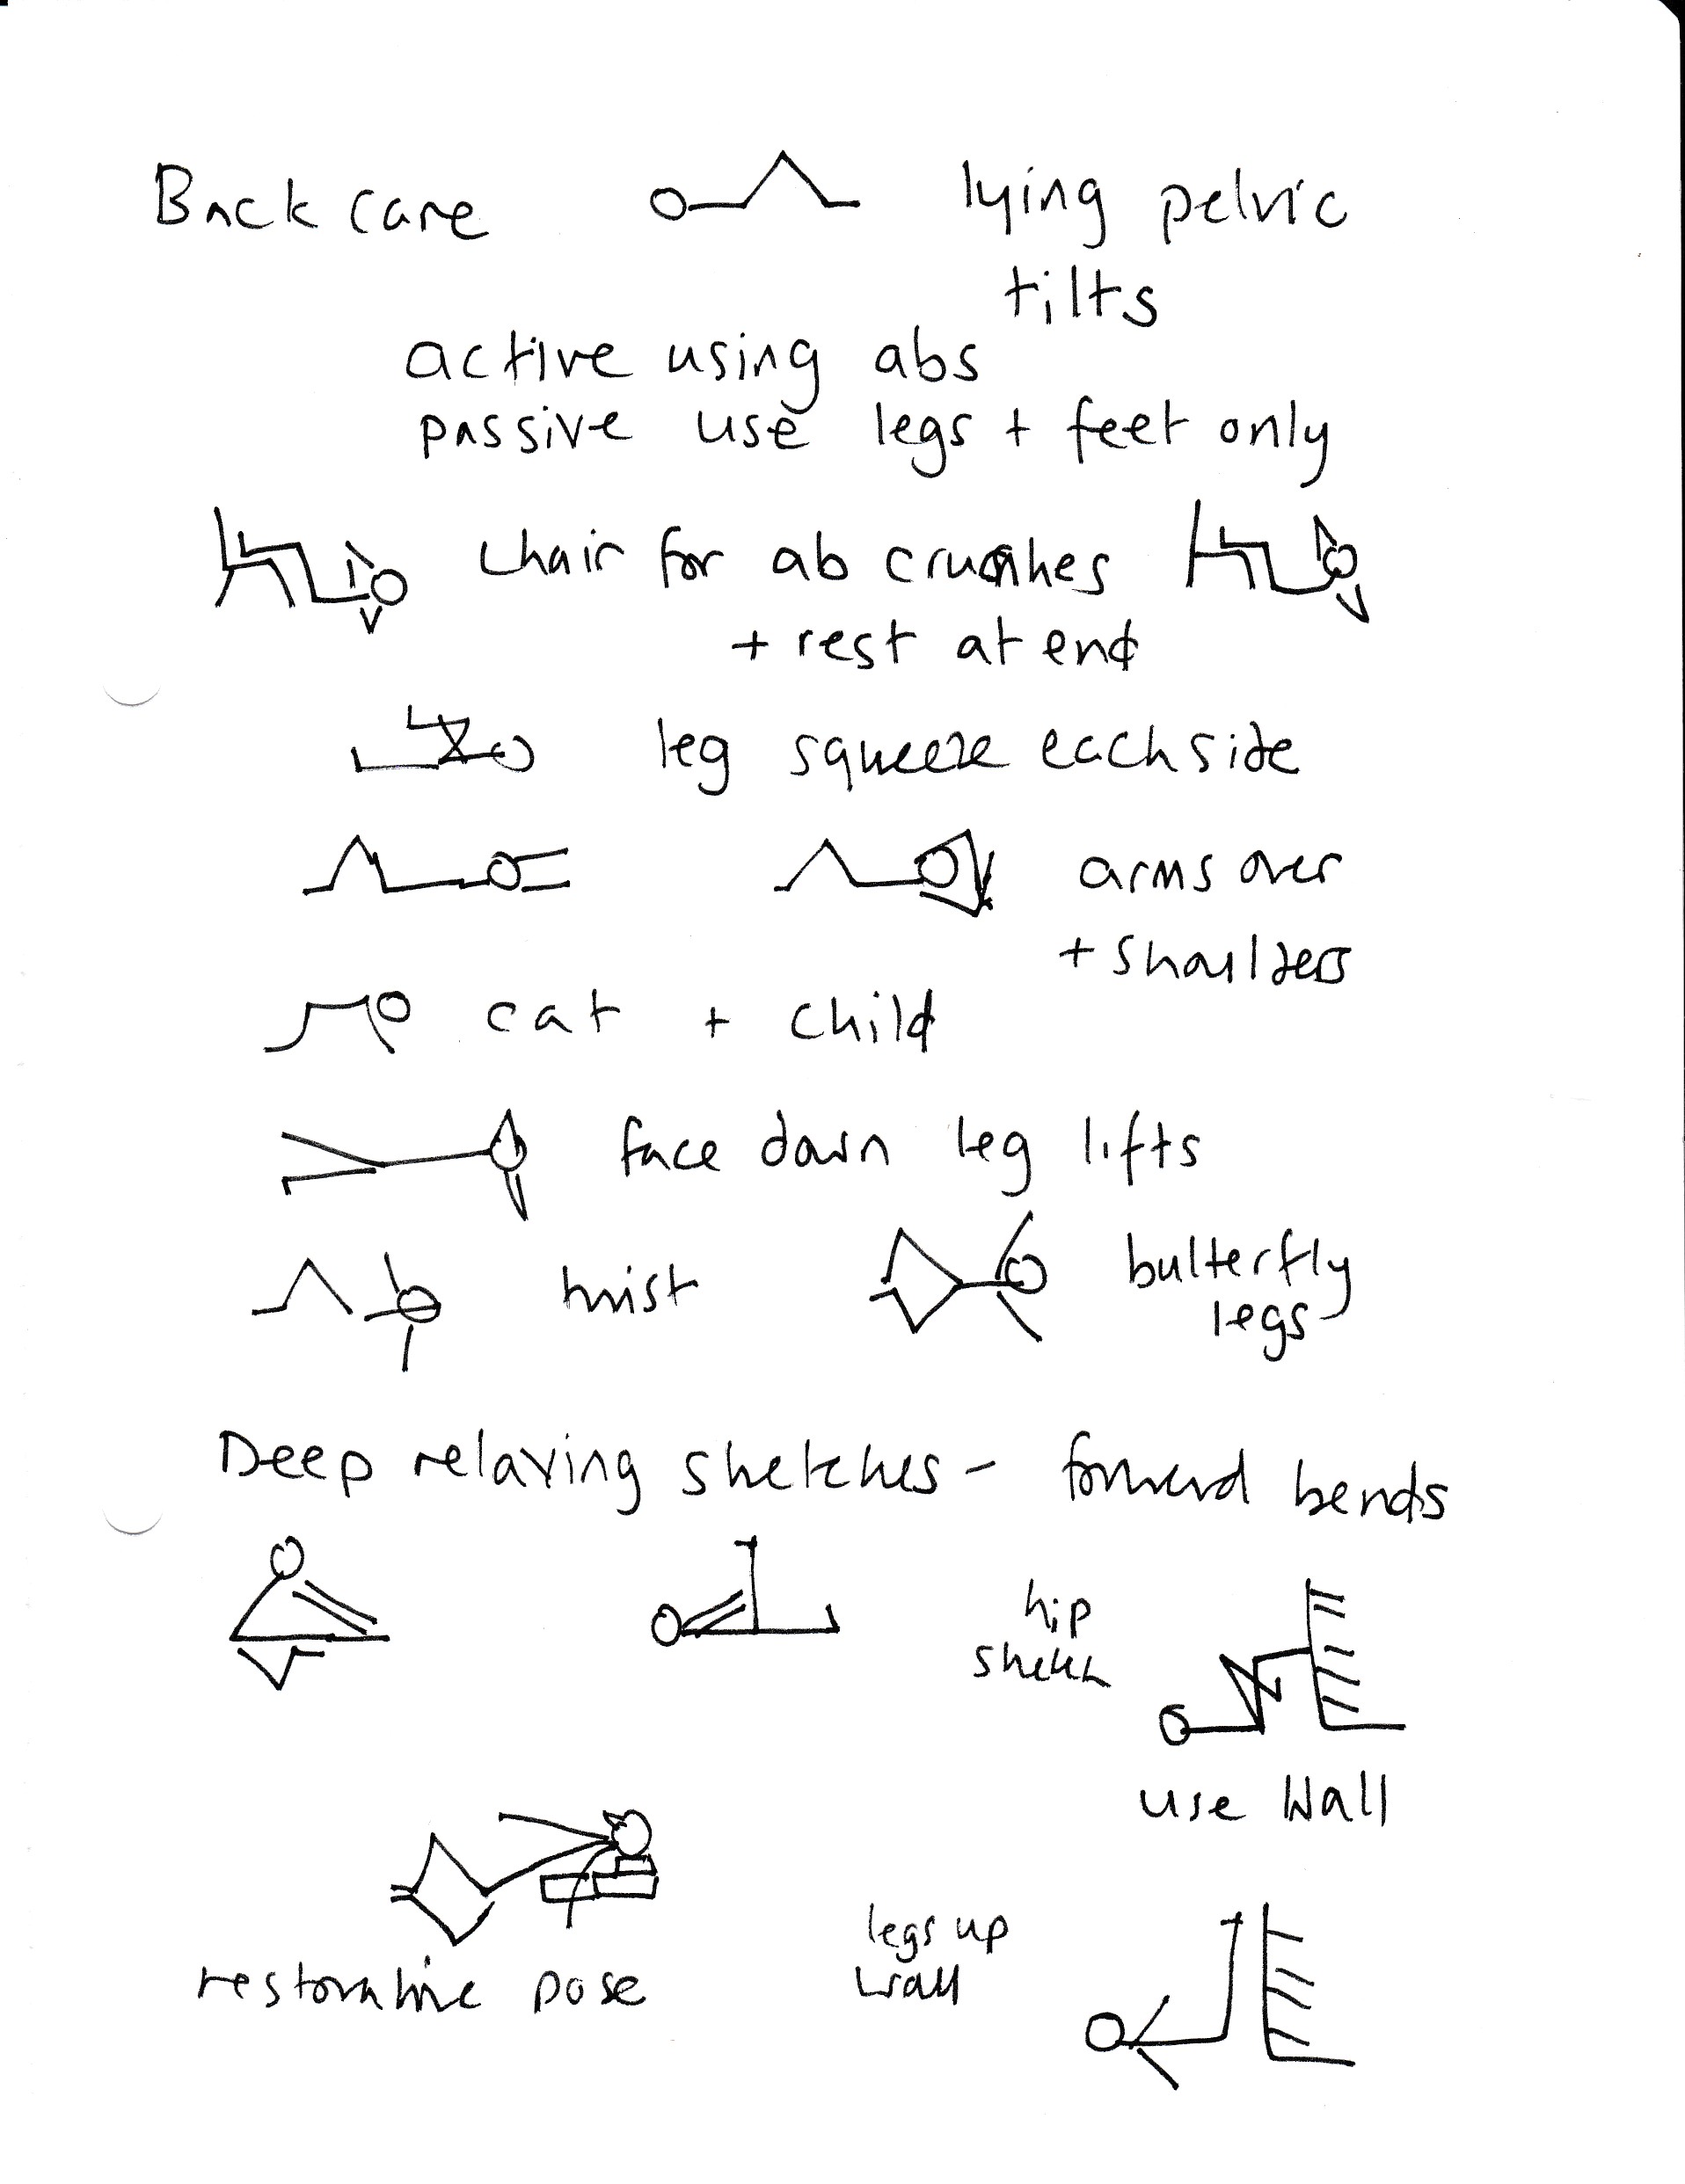 Back care
lying pelvic
tilts
active using abs
passive use legs + feet only
chair for ab crunches
+ rest at end
leg squeeze each side
arms over
+ shoulders
cat + child
face down leg lifts
twist
butterfly
legs
Deep relaxing stretches - forward bends
hip
stretch
use wall
restorative pose
legs up
wall